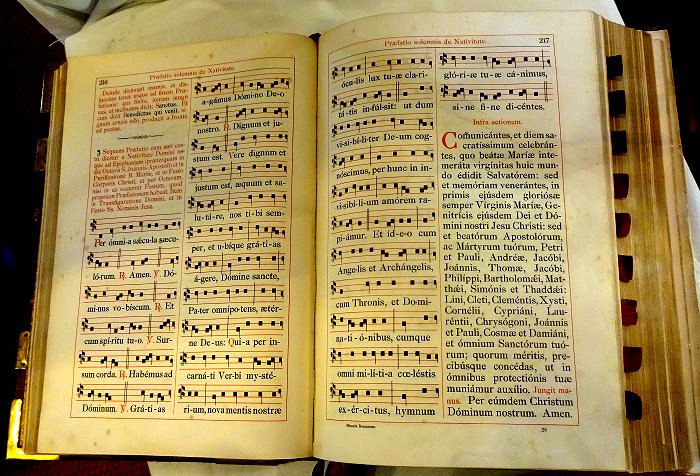 216
Præfatio solemnis de Nativitate.
Deinde disjungit manus, et dis-
junctas tenet usque ad finem Præ-
fationis: qua finita, iterum jungit
eas, et inclinatus dicit: Sanctus. Et
cum dicit Benedictus qui venit, si-
gnum crucis sibi producit a fronte
ad pectus.
Sequens Præfatio cum suo can-
tu dicitur a Nativitate Domini us-
que ad Epiphaniam (præterquam in
die Octava S. Joannis Apostoli) et in
Purificatione B. Mariæ, et in Festo
Corporis Christi, et per Octavam,
nisi in ea occurrat Festum, quod
propriam Præfationem habeat. Item
in Transfiguratione Domini, et in
Festo Ss. Nominis Jesu.
Per ómni-a sǽcula sæcu-
lórum. ℟. Amen. ℣. Dó-
minus vo-bíscum. ℟. Et
cum spí-ri-tu tu-o. ℣. Sur-
sum corda. ℟. Habémus ad
Dóminum. ℣. Grá-ti-as
a-gámus Dómi-no De-o
nostro. ℟. Dignum et ju-
stum est. Vere dignum et
justum est, æquum et sa-
lu-tá-re, nos ti-bi sem-
per, et u-bíque grá-ti-as
á-gere, Dómine sancte,
Pa-ter omnípo-tens, ætér-
ne De-us: Qui-a per in-
carná-ti Ver-bi my-sté-
ri-um, nova mentis nostræ
217
Præfatio solemnis de Nativitate.
ócu-lis lux tu-æ cla-ri-
tá-tis in-fúl-sit: ut dum
vi-si-bí-li-ter De-um cog-
nóscimus, per hunc in in-
vi-si-bí-li-um amórem ra-
pi-ámur. Et íd-e-o cum
Ange-lis et Archánge-lis,
cum Thronis, et Do-mi-
na-ti-ó-nibus, cumque
omni mi-lí-ti-a cœ-léstis
ex-ér-ci-tus, hymnum
gló-ri-æ tu-æ cá-nimus,
si-ne fi-ne di-céntes.
Infra actionem.
Communicántes, et diem sa-
cratíssimum celebrán-
tes, quo beátæ Maríæ inte-
meráta virgínitas huic mundo
édidit Salvatórem: sed
et memóriam venerántes, in
primis ejúsdem gloriósæ
semper Vírginis Maríæ, Ge-
nitrícis ejúsdem Dei et Dó-
mini nostri Jesu Christi: sed
et beatórum Apostolórum,
ac Mártyrum tuórum, Petri
et Pauli, Andréæ, Jacóbi,
Joánnis, Thomæ, Jacóbi,
Philíppi, Bartholomǽi, Mat-
thǽi, Simónis et Thaddǽi:
Lini, Cleti, Cleméntis, Xysti,
Cornélii, Cypriáni, Lau-
réntii, Chrysógoni, Joánnis
et Pauli, Cosmæ et Damiáni,
et ómnium Sanctórum tuó-
rum; quorum méritis, pre-
cibúsque concédas, ut in
ómnibus protectiónis tuæ
muniámur auxílio. Jungit ma-
nus. Per eúmdem Christum
Dóminum nostrum. Amen.
Missale Romanum.
28